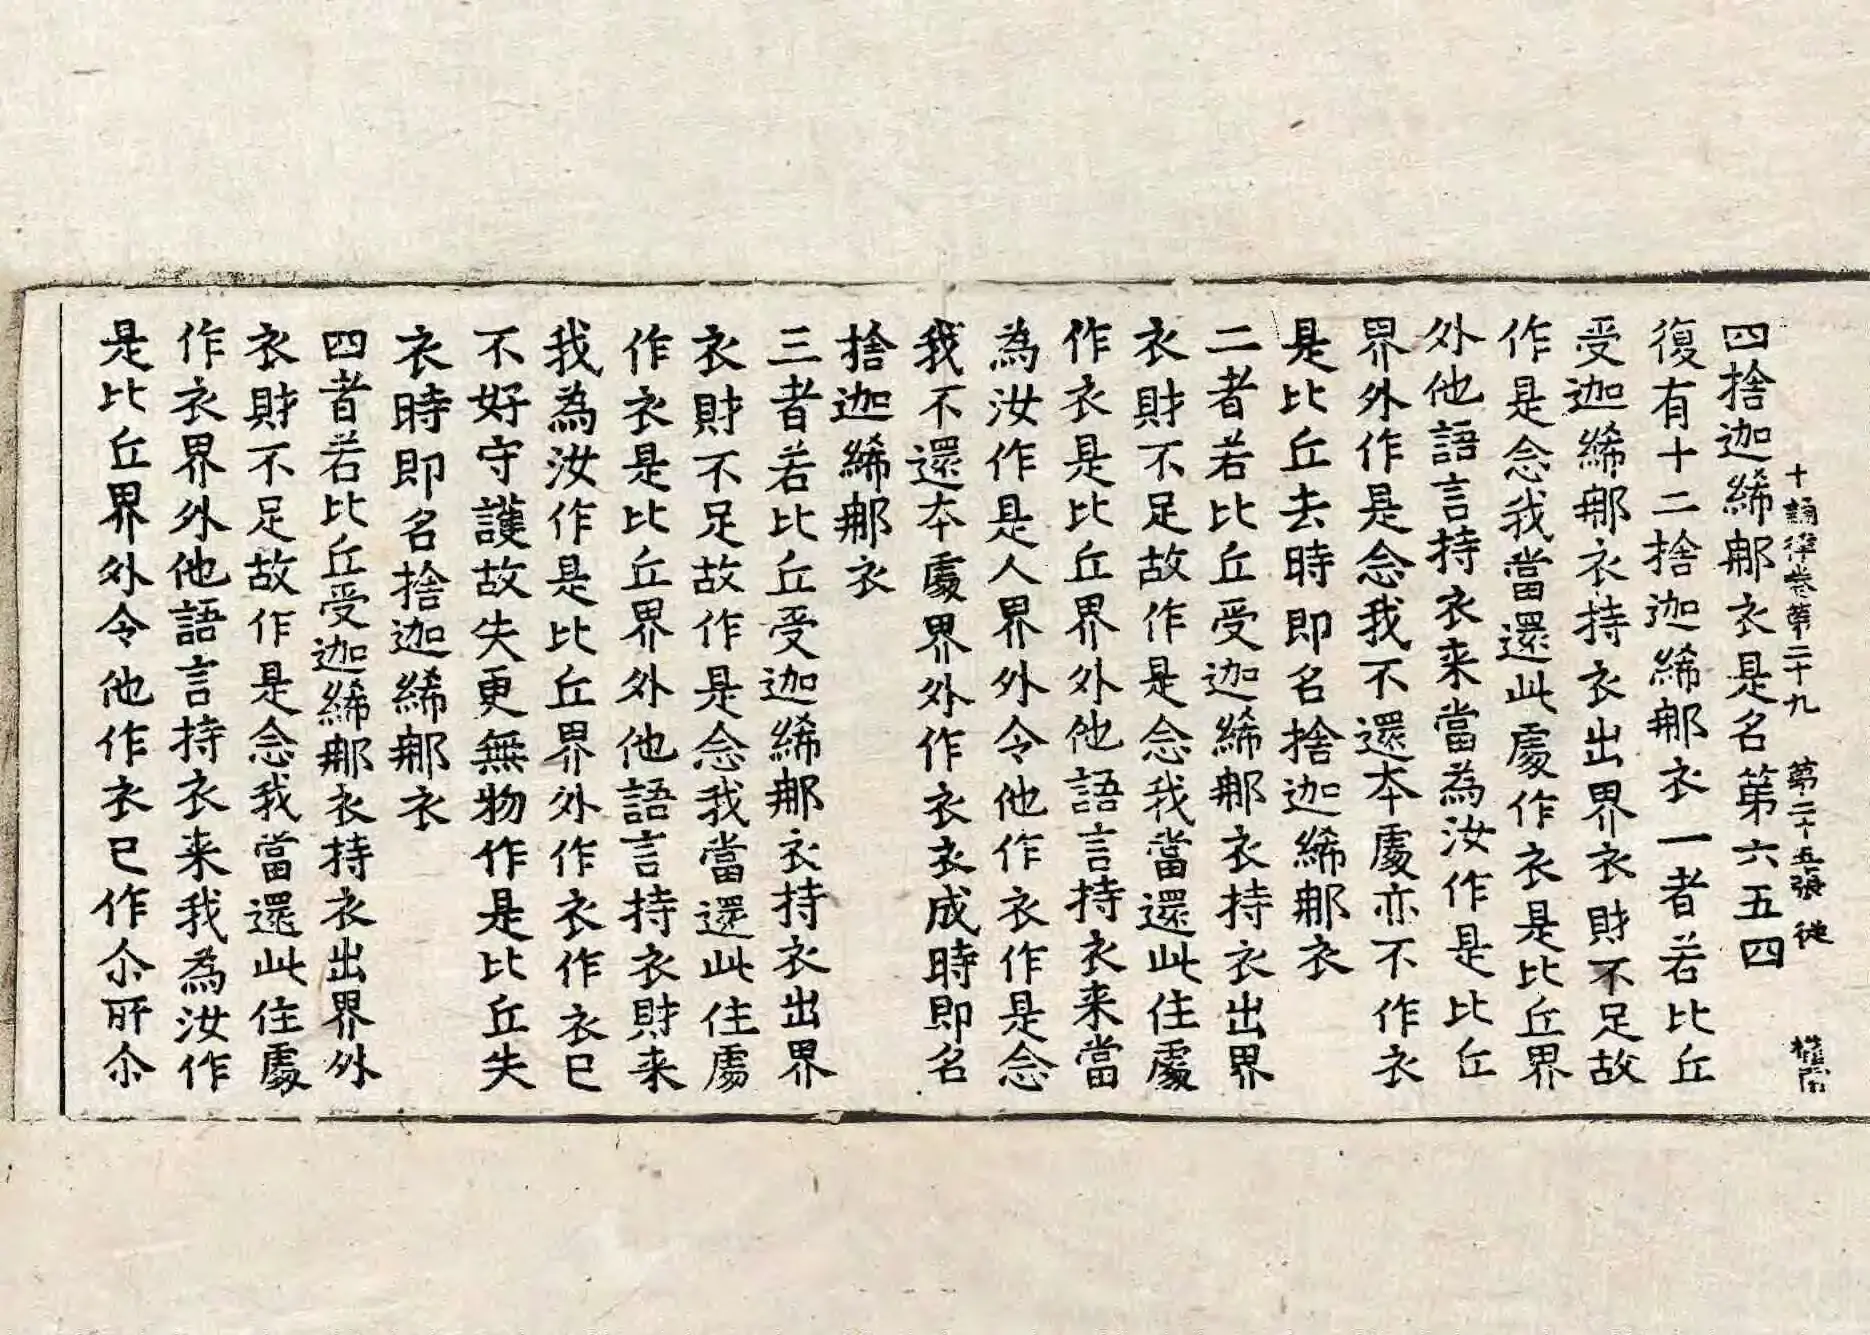 十誦律卷第二十九　第二十五張　徒
四捨迦絺郍衣是名第六五四
復有十二捨迦絺郍衣一者若比丘
受迦絺郍衣持衣出界衣財不足故
作是念我當還此處作衣是比丘界
外他語言持衣来當為汝作是比丘
界外作是念我不還夲處亦不作衣
是比丘去時即名捨迦絺郍衣
二者若比丘受迦絺郍衣持衣出界
衣財不足故作是念我當還此住處
作衣是比丘界外他語言持衣来當
為汝作是人界外令他作衣作是念
我不還夲處界外作衣衣成時即名
捨迦絺郍衣
三者若比丘受迦絺郍衣持衣出界
衣財不足故作是念我當還此住處
作衣是比丘界外他語言持衣財来
我為汝作是比丘界外作衣作衣已
不好守護故失更無物作是比丘失
衣時即名捨迦絺郍衣
四者若比丘受迦絺郍衣持衣出界外
衣財不足故作是念我當還此住處
作衣界外他語言持衣来我為汝作
是比丘界外令他作衣已作尒所尒